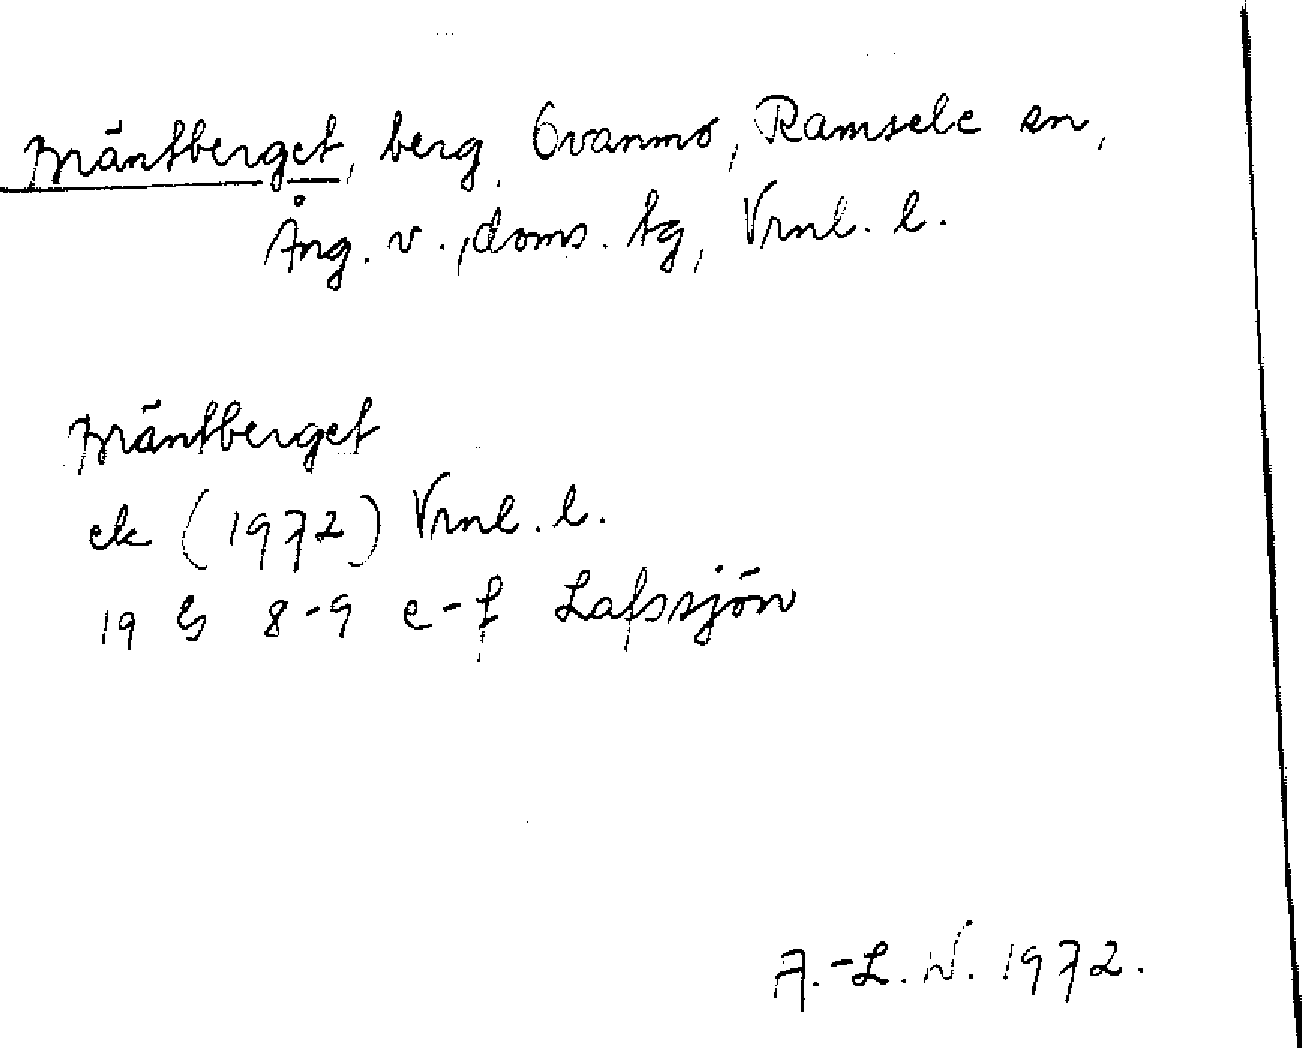 Bräntberget, berg, Ovanmo, Ramsele sn,
Ång. v., doms. tg, Vrnl. l.
Bräntberget
ek (1972) Vrnl. l.
19 G 8-9 e-f Lafssjön
A.-L. W. 1972.